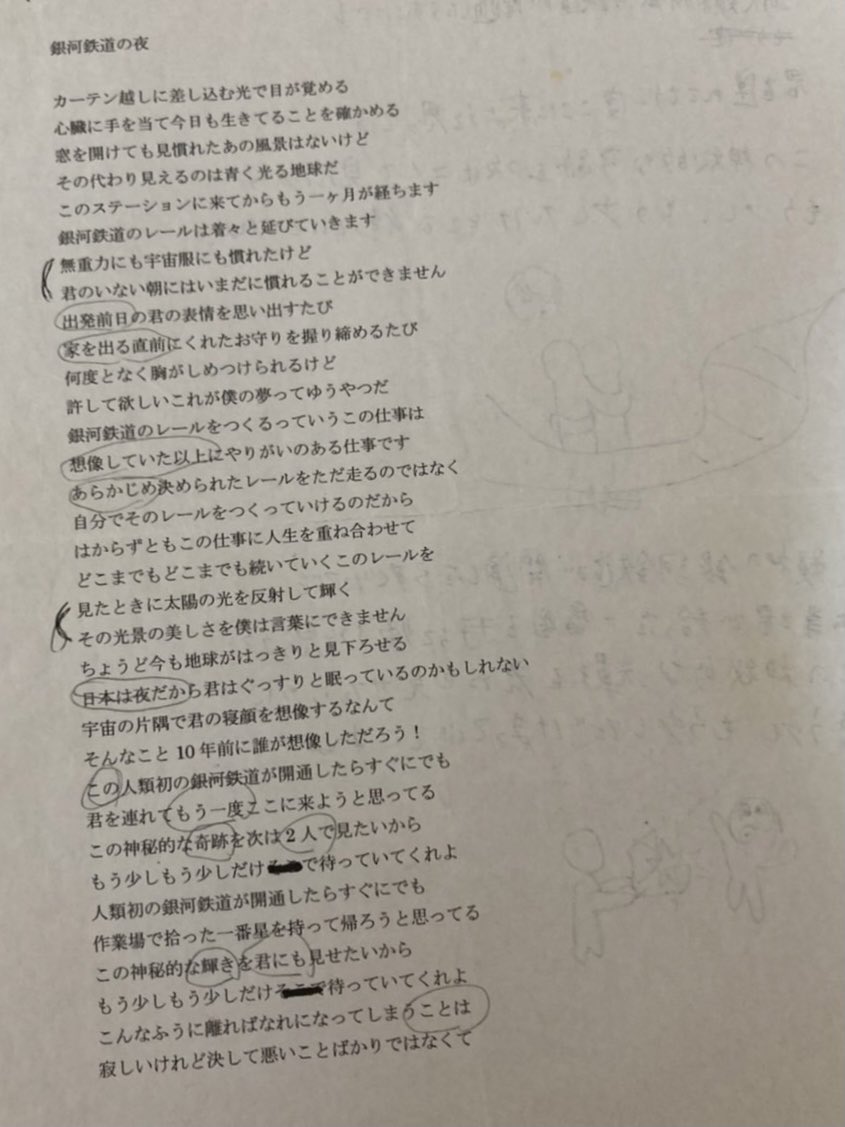 銀河鉄道の夜
カーテン越しに差し込む光で目が覚める
心臓に手を当て今日も生きてることを確かめる
窓を開けても見慣れたあの風景はないけど
その代わり見えるのは青く光る地球だ
このステーションに来てからもう一ヶ月が経ちます
銀河鉄道のレールは着々と延びていきます
無重力にも宇宙服にも慣れたけど
君のいない朝にはいまだに慣れることができません
出発前日の君の表情を思い出すたび
家を出る直前にくれたお守りを握り締めるたび
何度となく胸がしめつけられるけど
許して欲しいこれが僕の夢ってゆうやつだ
銀河鉄道のレールをつくるっていうこの仕事は
想像していた以上にやりがいのある仕事です
あらかじめ決められたレールをただ走るのではなく
自分でそのレールをつくっていけるのだから
はからずともこの仕事に人生を重ね合わせて
どこまでもどこまでも続いていくこのレールを
見たときに太陽の光を反射して輝く
その光景の美しさを僕は言葉にできません
ちょうど今も地球がはっきりと見下ろせる
日本は夜だから君はぐっすりと眠っているのかもしれない
宇宙の片隅で君の寝顔を想像するなんて
そんなこと10年前に誰が想像しただろう！
この人類初の銀河鉄道が開通したらすぐにでも
君を連れてもう一度ここに来ようと思ってる
この神秘的な奇跡を次は2人で見たいから
もう少しもう少しだけで待っていてくれよ
人類初の銀河鉄道が開通したらすぐにでも
作業場で拾った一番星を持って帰ろうと思ってる
この神秘的な輝きを君にも見せたいから
もう少しもう少しだけ待っていてくれよ
こんなふうに離ればなれになってしまうことは
寂しいけれど決して悪いことばかりではなくて